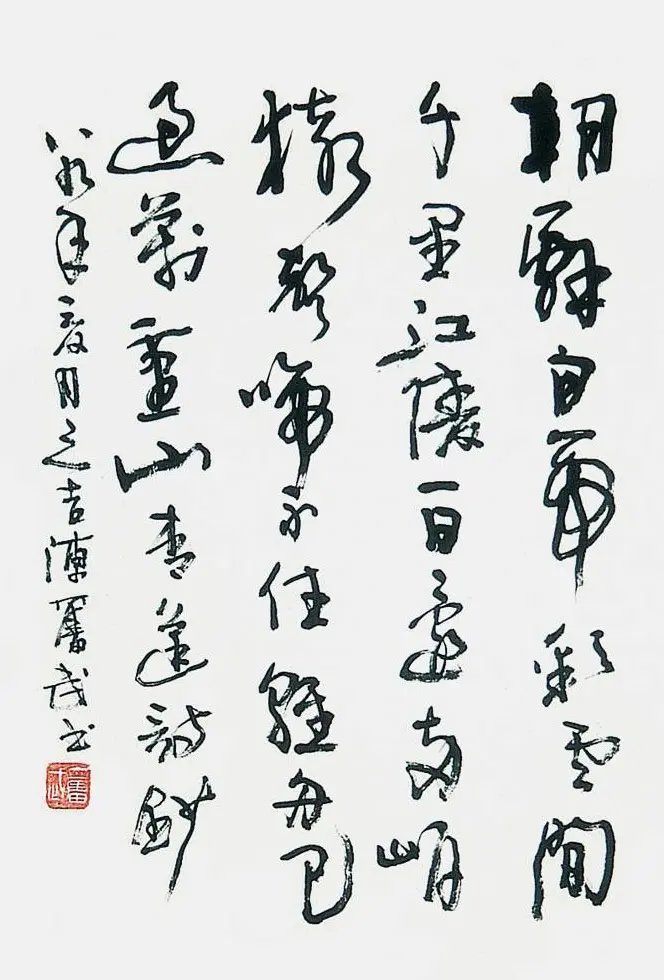 朝辭白帝彩雲間
千里江陵一日還兩岸
猿聲啼不住輕舟已
過萬重山青蓮詩鈔
八九年夏月之吉陳奮武書